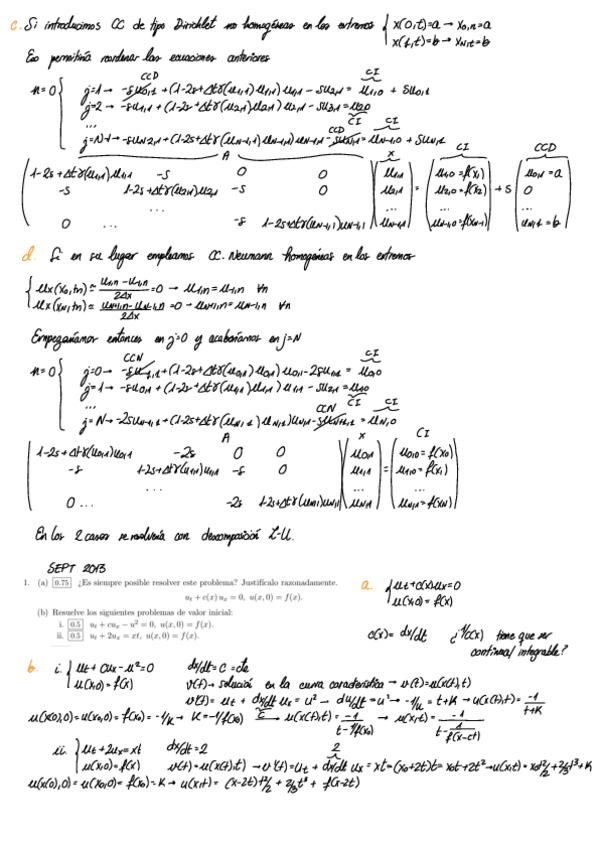 c. Si introducimos CC de tipo Dirichlet no homogéneas en los extremos { x(0,t)=a → x₀,n=a
x(1,t)=b → x_N,t=b
Eso permitiría reordenar las ecuaciones anteriores
CCD CI
n=0 { j=1 → -su₀,₁ + (1-2s+Δtγ(u₁,₁)u₁,₁)u₁,₁ - su₂,₁ = u₁,₀ + su₀,₁
j=2 → -su₁,₁ + (1-2s+Δtγ(u₂,₁)u₂,₁)u₂,₁ - su₃,₁ = u₂,₀
...
CCD CI
A x CI CCD
1-2s+Δtγ(u₁,₁)u₁,₁ -s 0 0 u₁,₁ = u₁,₀=f(x₁) + s u₀,₁=a
-s 1-2s+Δtγ(u₂,₁)u₂,₁ -s 0 u₂,₁ u₂,₀=f(x₂) 0
... ... ... ...
0 -s 1-2s+Δtγ(u_N-1,₁)u_N-1,₁ u_N-1,₁ u_N-1,₀=f(x_N-1) u_N,₁=b
d. Si en su lugar empleamos CC. Neumann homogéneas en los extremos
{ ux(x₀,tn) ≃ (u₁,n - u₋₁,n)/2Δx = 0 → u₁,n = u₋₁,n ∀n
ux(x_N,tn) ≃ (u_N+1,n - u_N-1,n)/2Δx = 0 → u_N+1,n = u_N-1,n ∀n
Empezaríamos entonces en j=0 y acabaríamos en j=N
CCN CI
n=0 { j=0 → -su₋₁,₁ + (1-2s+Δtγ(u₀,₁)u₀,₁)u₀,₁ - 2su₁,₁ = u₀,₀
j=1 → -su₀,₁ + (1-2s+Δtγ(u₁,₁)u₁,₁)u₁,₁ - su₂,₁ = u₁,₀
...
CCN CI
j=N → -2su_N-1,₁ + (1-2s+Δtγ(u_N,₁)u_N,₁)u_N,₁ - su_N+1,₁ = u_N,₀
A x CI
1-2s+Δtγ(u₀,₁)u₀,₁ -2s 0 0 u₀,₁ = u₀,₀=f(x₀)
-s 1-2s+Δtγ(u₁,₁)u₁,₁ -s 0 u₁,₁ u₁,₀=f(x₁)
... ... ...
0 ... -2s 1-2s+Δtγ(u_N,₁)u_N,₁ u_N,₁ u_N,₀=f(x_N)
En los 2 casos se resolvería con descomposición L-U.
SEPT 2013
1. (a) 0.75 ¿Es siempre posible resolver este problema? Justifícalo razonadamente.
u_t + c(x) u_x = 0, u(x, 0) = f(x).
(b) Resuelve los siguientes problemas de valor inicial:
i. 0.5 u_t + cu_x − u² = 0, u(x, 0) = f(x).
ii. 0.5 u_t + 2u_x = xt, u(x, 0) = f(x).
a. { ut+c(x)ux=0
u(x,0)=f(x)
c(x)=dx/dt ¿1/c(x) tiene que ser
continua/integrable?
b. i. { ut+cux-u²=0 dx/dt=c=cte
u(x,0)=f(x) v(t)→solución en la curva característica → v(t)=u(x(t),t)
v'(t) = ut + dx/dt ux = u² → du/dt=u² → -1/u = t+K → u(x(t),t) = -1/(t+K)
u(x(0),0)=u(x₀,0)=f(x₀)=-1/K → K=-1/f(x₀) → u(x(t),t) = -1/(t-1/f(x₀)) → u(x,t) = -1/(t-1/f(x-ct))
ii. { ut+2ux=xt dx/dt=2
u(x,0)=f(x) v(t)=u(x(t),t) → v'(t)=ut + dx/dt ux = xt=(x₀+2t)t= x₀t+2t² → u(x,t)= x₀t²/2+2/3t³+K
u(x(0),0)=u(x₀,0)=f(x₀)=K → u(x,t) = (x-2t)t²/2 + 2/3t³ + f(x-2t)